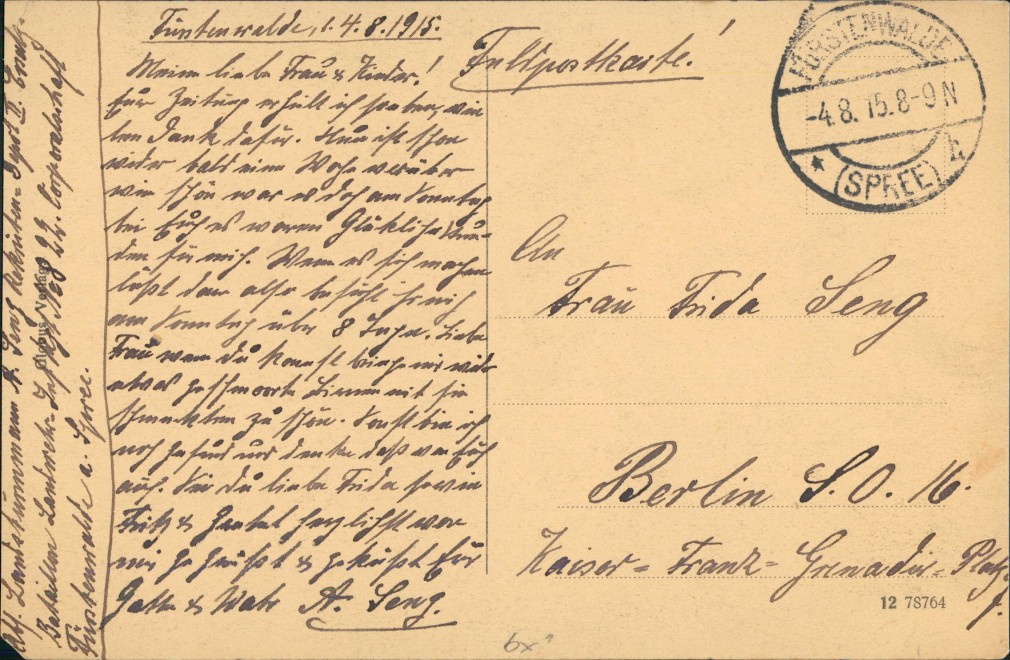 Fürstenwalde, d. 4.8.1915.
Feldpostkarte!
Meine liebe Frau & Kinder!
Eure Zeitung erhielt ich soeben, vie-
len Dank dafür. Nun ist schon
wieder bald eine Woche vorüber
wie schön war es doch am Sonntag
bei Euch es waren Glückliche Stun-
den für mich. Wenn es sich machen
läßt dann also besucht ihr mich
am Sonntag über 8 Tage. Liebe
Frau wenn du kannst bringe mir wieder
etwas geschmorte Birnen mit sie
schmeckten zu schön. Sonst bin ich
noch gesund und denke daß von Euch
auch. Sei du liebe Frida sowie
Fritz & herzlichst von
mir gegrüßt & geküßt Eür
Gatte & Vater A. Seng.
Abs. Landsturmmann A. Seng Rekruten-Depot II. Ersatz-
Bataillon Landwehr-Inf. Rgt. 22. Corporalschaft
Fürstenwalde a. Spree.
FÜRSTENWALDE
-4.8.15.8-9N
(SPREE)
An
Frau Frida Seng
Berlin S.O. 16.
Kaiser-Franz-Grenadier-Platz
12 78764